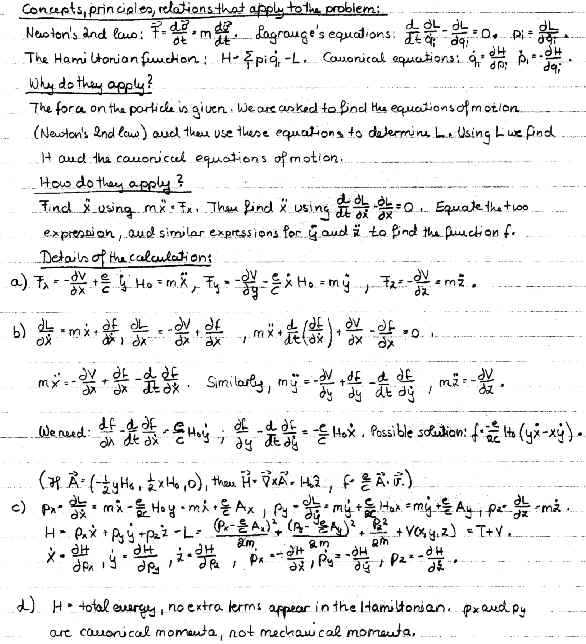 Concepts, principles, relations that apply to the problem:
Newton's 2nd law: F⃗ = dp⃗/dt = m dv⃗/dt. Lagrange's equations: d/dt ∂L/∂q̇ᵢ - ∂L/∂qᵢ = 0, pᵢ = ∂L/∂q̇ᵢ.
The Hamiltonian function: H = Σ pᵢq̇ᵢ - L. Canonical equations: q̇ᵢ = ∂H/∂pᵢ ṗᵢ = -∂H/∂qᵢ.
Why do they apply?
The force on the particle is given. We are asked to find the equations of motion
(Newton's 2nd law) and then use these equations to determine L. Using L we find
H and the canonical equations of motion.
How do they apply?
Find ẍ using mẍ = Fₓ. Then find ẍ using d/dt ∂L/∂ẋ - ∂L/∂x = 0. Equate the two
expression, and similar expressions for ÿ and z̈ to find the function f.
Details of the calculation:
a) Fₓ = -∂V/∂x + e/c ẏ H₀ = mẍ, F_y = -∂V/∂y - e/c ẋ H₀ = mÿ, F_z = -∂V/∂z = mz̈.
b) ∂L/∂ẋ = mẋ + ∂f/∂ẋ, ∂L/∂x = -∂V/∂x + ∂f/∂x, mẍ + d/dt(∂f/∂ẋ) + ∂V/∂x - ∂f/∂x = 0.
mẍ = -∂V/∂x + ∂f/∂x - d/dt ∂f/∂ẋ. Similarly, mÿ = -∂V/∂y + ∂f/∂y - d/dt ∂f/∂ẏ, mz̈ = -∂V/∂z.
We need: ∂f/∂x - d/dt ∂f/∂ẋ = e/c H₀ẏ; ∂f/∂y - d/dt ∂f/∂ẏ = -e/c H₀ẋ. Possible solution: f = -e/2c H₀ (yẋ - xẏ).
(If A⃗ = (-½yH₀, ½xH₀, 0), then H⃗ = ∇⃗×A⃗ = H₀ẑ, f = e/c A⃗·v⃗.)
c) pₓ = ∂L/∂ẋ = mẋ - e/2c H₀y = mẋ + e/c Aₓ, p_y = ∂L/∂ẏ = mẏ + e/2c H₀x = mẏ + e/c A_y, p_z = ∂L/∂ż = mż.
H = pₓẋ + p_yẏ + p_zż - L = (pₓ - e/c Aₓ)²/2m + (p_y - e/c A_y)²/2m + p_z²/2m + V(x,y,z) = T + V.
ẋ = ∂H/∂pₓ, ẏ = ∂H/∂p_y, ż = ∂H/∂p_z, ṗₓ = -∂H/∂x, ṗ_y = -∂H/∂y, ṗ_z = -∂H/∂z.
d) H = total energy, no extra terms appear in the Hamiltonian. pₓ and p_y
are canonical momenta, not mechanical momenta.